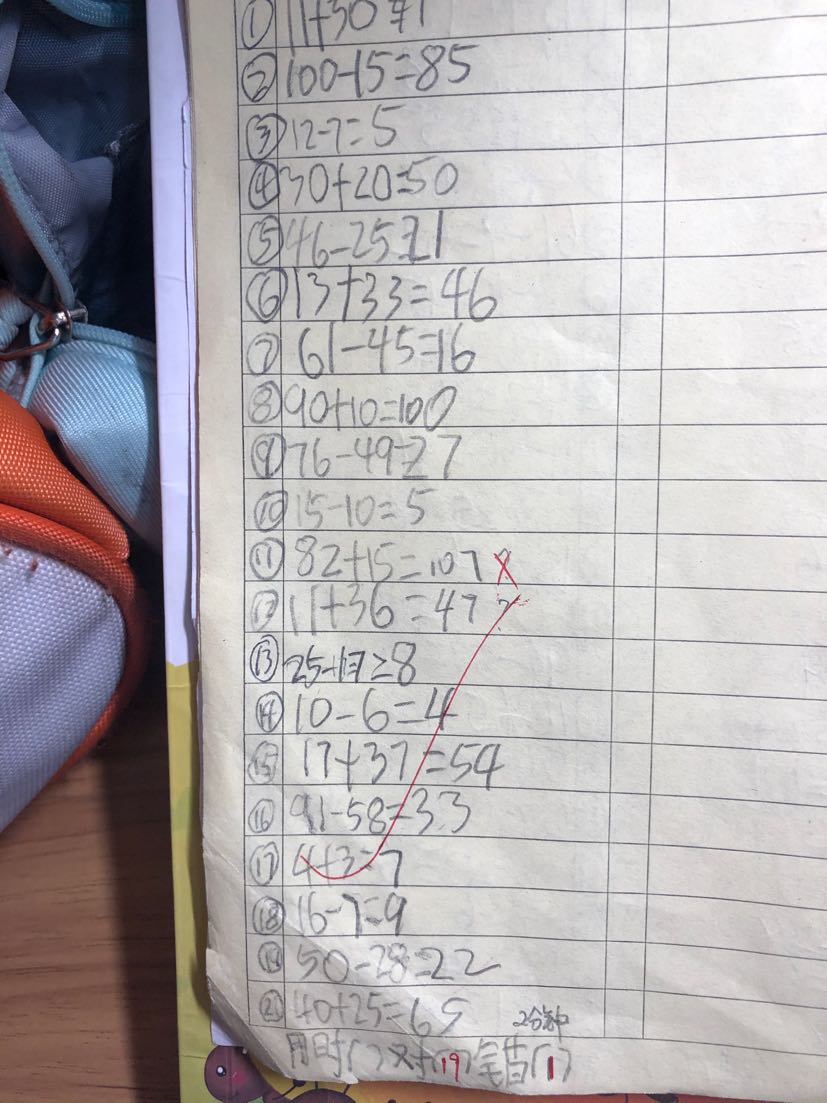 ① 11+30=41
② 100-15=85
③ 12-7=5
④ 30+20=50
⑤ 46-25=21
⑥ 13+33=46
⑦ 61-45=16
⑧ 90+10=100
⑨ 76-49=27
⑩ 15-10=5
⑪ 82+15=107
⑫ 11+36=47
⑬ 25-17=8
⑭ 10-6=4
⑮ 17+37=54
⑯ 91-58=33
⑰ 4+3=7
⑱ 16-7=9
⑲ 50-28=22
⑳ 40+25=65 2分钟
用时( )对(19)错(1)